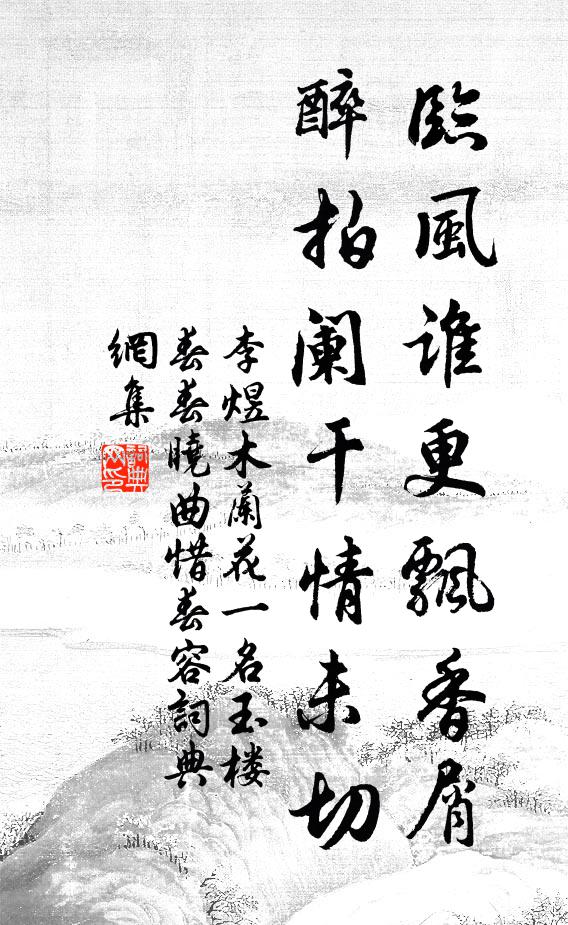 臨風誰更飄香屑
醉拍闌干情未切
李煜木蘭花一名玉楼
春春曉曲惜春容詞典
網集
詞典网印